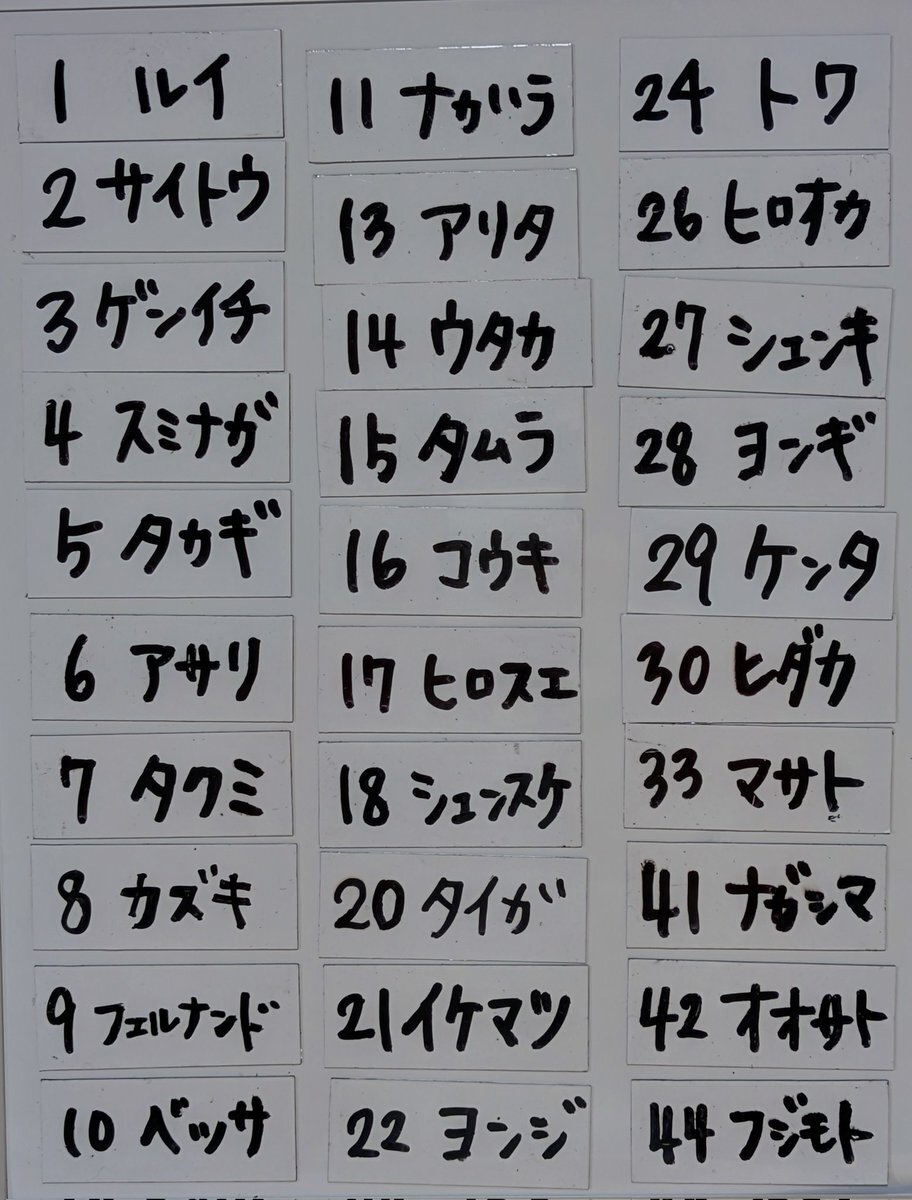 1 ルイ
2 サイトウ
3 ゲンイチ
4 スミナガ
5 タカギ
6 アサリ
7 タクミ
8 カズキ
9 フェルナンド
10 ベッサ
11 ナガハラ
13 アリタ
14 ウタカ
15 タムラ
16 コウキ
17 ヒロスエ
18 シュンスケ
20 タイガ
21 イケマツ
22 ヨンジ
24 トワ
26 ヒロオカ
27 シュンキ
28 ヨンギ
29 ケンタ
30 ヒダカ
33 マサト
41 ナガシマ
42 オオサト
44 フジモト